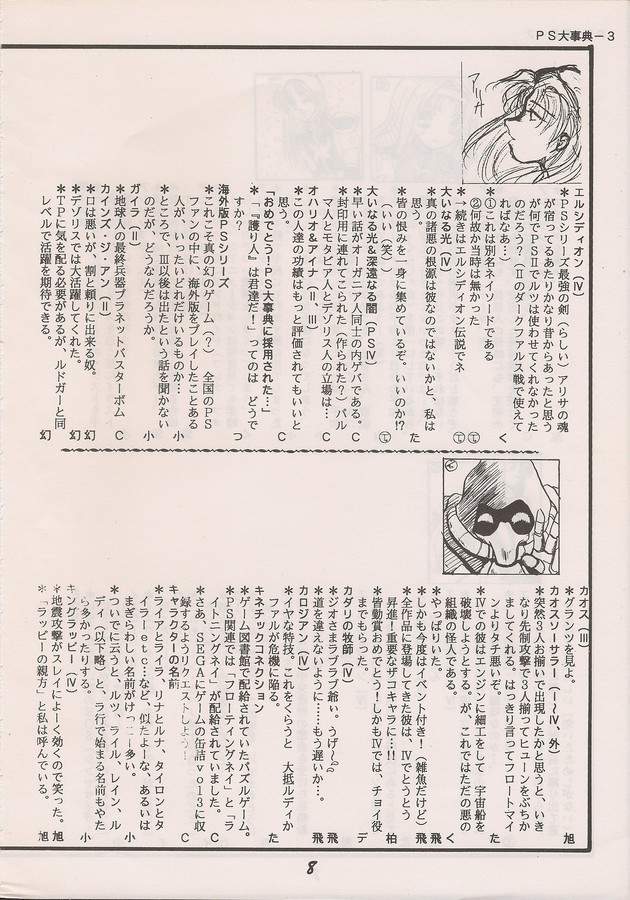 PS大事典－3
アッサリ
エルシディオン（Ⅳ）
＊PSシリーズ最強の剣（らしい）アリサの魂
が宿ってるあたりかなり昔からあったと思う
が何でPSⅡでルツは使わせてくれなかった
のだろう？（Ⅱのダークファルス戦で使えて
ればなあ…　く
＊①これは別名ネイソードである
②何故か当時は無かった　㋓
→続きはエルシディオン伝説でネ　㋓
大いなる光（Ⅳ）
＊真の諸悪の根源は彼なのではないかと、私は
思う。　た
＊皆の恨みを一身に集めているぞ。いいのか!?
（いい（笑）　㋓
大いなる光＆深遠なる闇（PSⅣ）
＊早い話がオーガニア人同士の内ゲバである。C
＊封印用に連れてこられた（作られた？）パル
マ人とモタビア人とデゾリス人の立場は…　C
オハリオ＆アイナ（Ⅱ、Ⅲ）
＊この人達の功績はもっと評価されてもいいと
思う。　C
「おめでとう！PS大事典に採用された…」
＊「『護り人』は君達だ！」ってのは　どうで
すか？　つ
海外版PSシリーズ
＊これこそ真の幻のゲーム（？）　全国のPS
ファンの中に、海外版をプレイしたことある
人が、いったいどれだけいるものか…　小
＊ところで、Ⅲ以後は出たという話を聞かない
のだが、どうなんだろうか。　小
ガイラ（Ⅱ）
＊地球人の最終兵器プラネットバスターボム　C
カインズ・ジ・アン（Ⅱ）
＊口は悪いが、割と頼りに出来る奴。　幻
＊デゾリスでは大活躍してくれた。　幻
＊TPに気を配る必要があるが、ルドガーと同
レベルで活躍を期待できる。　幻
カオス（Ⅲ）
＊グランツを見よ。　旭
カオスソーサラー（Ⅰ～Ⅳ、外）
＊突然3人お揃いで出現したかと思うと、いき
なり先制攻撃で3人揃ってヒューンをぶちか
ましてくれる。はっきり言ってフロートマイ
ンよりタチ悪いぞ。　た
＊Ⅳでの彼はエンジンに細工をして　宇宙船を
破壊しようとする。が、これではただの悪の
組織の怪人である。　く
＊やっぱりいた。　飛
＊しかも今度はイベント付き！（雑魚だけど）　飛
＊全作品に登場してきた彼は、Ⅳでとうとう
昇進！重要なザコキャラに…!!　柏
＊皆勤賞おめでとう！しかもⅣでは、チョイ役
までもらった。　デ
カダリの牧師（Ⅳ）
＊ジオさまラブラブ爺ぃ。うげ～　飛
＊道を違えないように……もう遅いか…。　飛
カロジアン（Ⅳ）
＊イヤな特技。これをくらうと　大抵ルディか
ファルが危機に陥る。　た
キネチックコネクション
＊ゲーム図書館で配給されていたパズルゲーム。
PS関連では「フローティングネイ」と「ラ
イトニングネイ」が配給されていました。　C
＊さあ、SEGAにゲームの缶詰vol3に収
録するようリクエストしよう！　C
キャラクターの名前
＊ライアとライラ、リナとルナ、タイロンとタ
イラーetc…など、似たよーな、あるいは
まぎらわしい名前がけっこー多い。　小
＊ついでに云うと、ルツ、ライル、レイン、ル
ディ（以下略）と、ラ行で始まる名前もやた
ら多かったりする。　小
キングラッピー（Ⅳ）
＊地震攻撃がスレイによーく効くので笑った。　旭
＊「ラッピーの親方」と私は呼んでいる。　旭
8